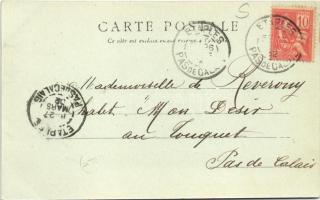 CARTE POSTALE
Ce côté est exclusivement réservé à l'adresse
ETAPLES
PAS-DE-CALAIS
ETAPLES
PAS-DE-CALAIS
10
Mademoiselle de Reverony
Chalet "Mon Désir"
au Touquet
Pas de Calais
ETAPLES
PAS-DE-CALAIS
MARS